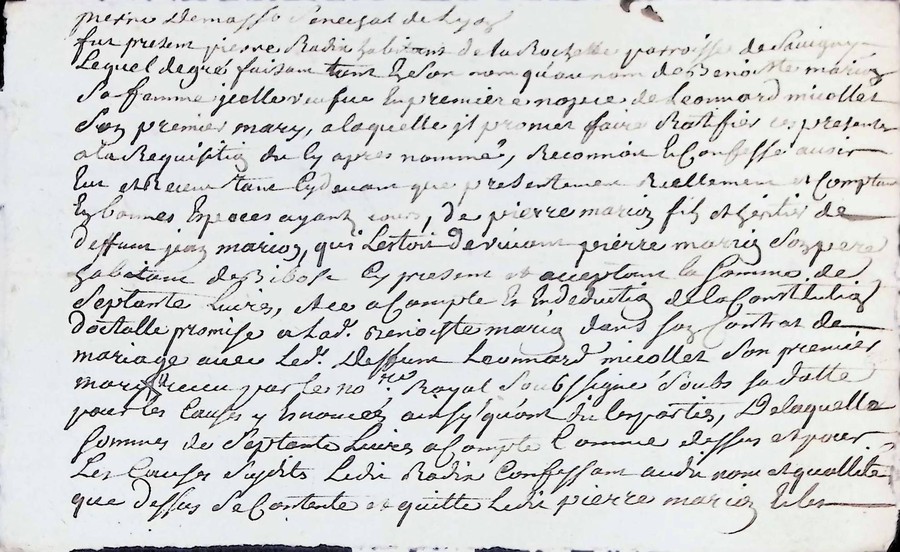 pierre Demasso Senechal de Lyon
fut present pierre Radix habitant de la Rochette parroisse de Savigny
Lequel de gré faisant tant En Son nom qu'au nom de Benoitte marion
Sa femme icelle veufve En premiere nopce de Leonnard micollet
Son premier mary, a laquelle il promet faire Ratiffier ces presentes
a la Requisition du Cy apres nommé, Reconnoit Et Confesse avoir
Eu et Receu tant Cy devant que presentement Reellement et Comptant
En bonnes Especes ayant cours, de pierre marion fils et heritier de
deffunt jean marion, qui L'estoit de vivant pierre marion Son pere
habitant de Bibost Cy present et acceptant la Somme de
Septante Livres, Et ce a Compte Et En deduction de la Constitution
dotalle promise a Lad. Benoiste marion dans Son Contrat de
mariage avec Led. Deffunt Leonnard micollet Son premier
mary Receu par le no.re Royal Soubssigné Soubs Sa datte
pour les Causes y Enoncées ainsy qu'ont dit les parties, De laquelle
Somme de Septante Livres a Compte Comme dessus et pour
Les Causes Susdites Ledit Radix Confessant audit nom et quallité
que dessus Se Contente et quitte Ledit pierre marion Et les